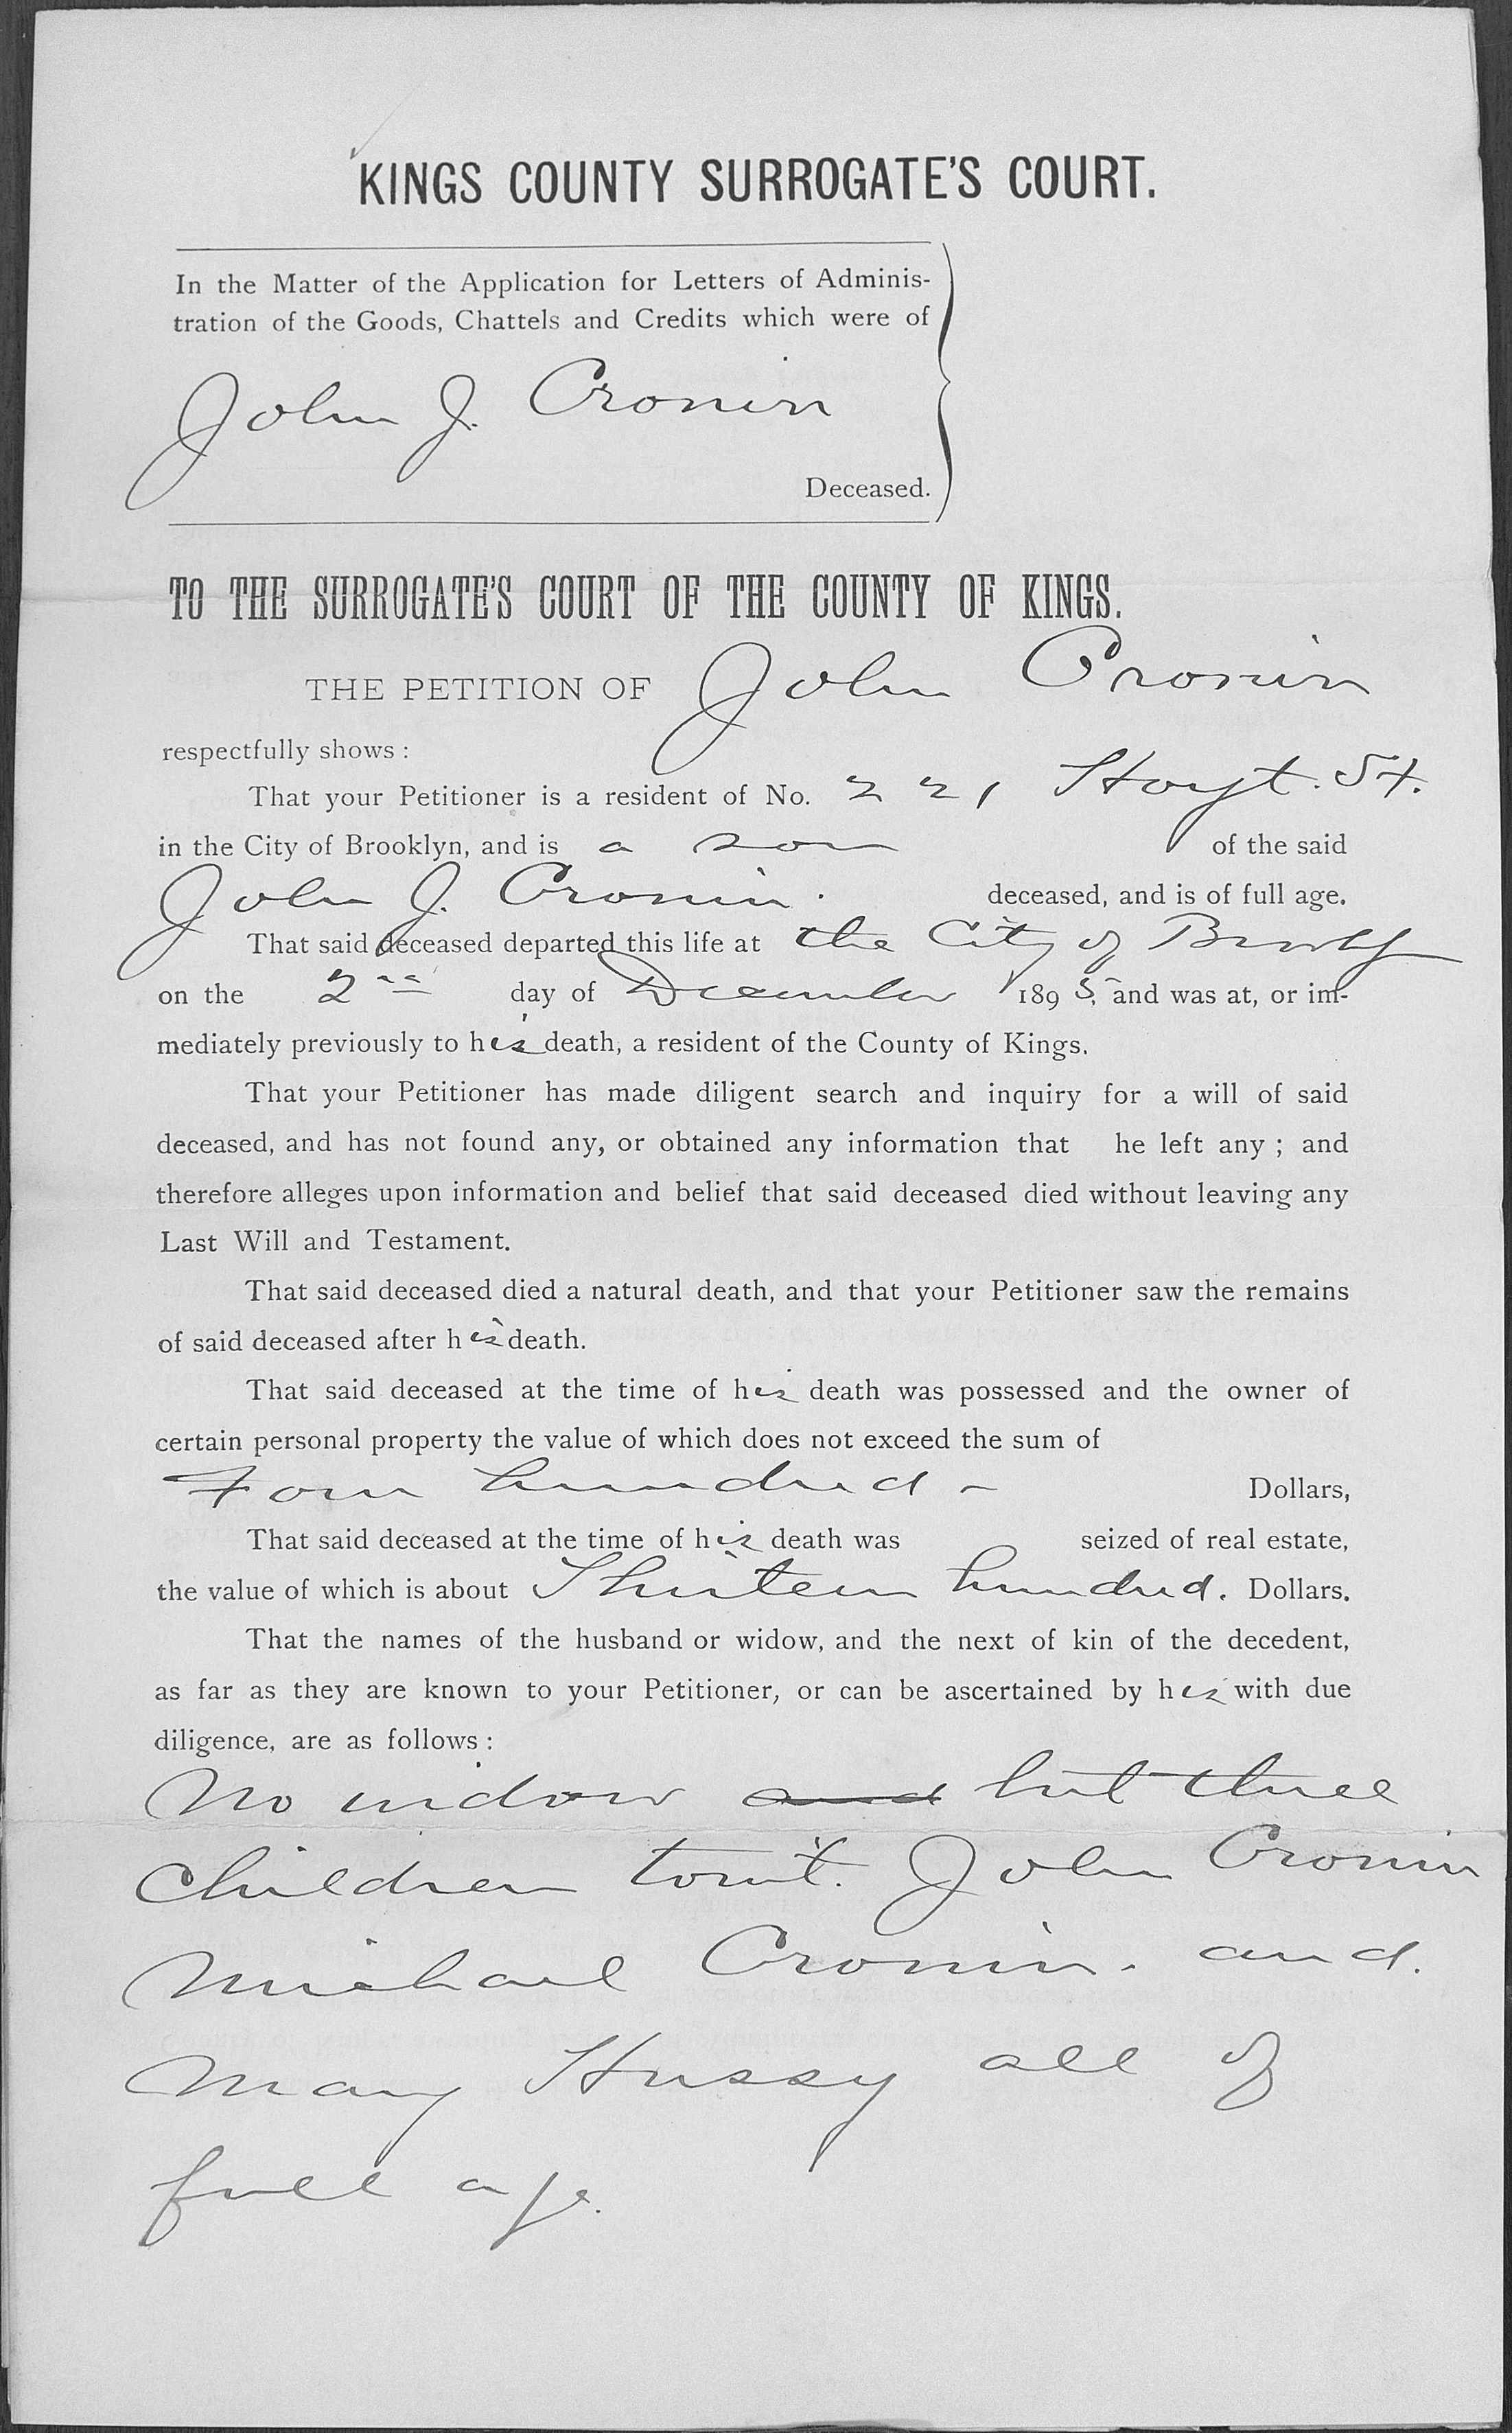 KINGS COUNTY SURROGATE'S COURT.
In the Matter of the Application for Letters of Adminis-
tration of the Goods, Chattels and Credits which were of
John J. Cronin
Deceased.
TO THE SURROGATE'S COURT OF THE COUNTY OF KINGS.
THE PETITION OF John Cronin
respectfully shows:
That your Petitioner is a resident of No. 221 Hoyt. St.
in the City of Brooklyn, and is a son of the said
John J. Cronin. deceased, and is of full age.
That said deceased departed this life at the City of Brooklyn
on the 2nd day of December 1895, and was at, or im-
mediately previously to his death, a resident of the County of Kings.
That your Petitioner has made diligent search and inquiry for a will of said
deceased, and has not found any, or obtained any information that he left any; and
therefore alleges upon information and belief that said deceased died without leaving any
Last Will and Testament.
That said deceased died a natural death, and that your Petitioner saw the remains
of said deceased after his death.
That said deceased at the time of his death was possessed and the owner of
certain personal property the value of which does not exceed the sum of
Four hundred - Dollars,
That said deceased at the time of his death was seized of real estate,
the value of which is about Thirteen hundred. Dollars.
That the names of the husband or widow, and the next of kin of the decedent,
as far as they are known to your Petitioner, or can be ascertained by his with due
diligence, are as follows:
No widow and but three
children towit. John Cronin
Michael Cronin. and.
Mary Hussy all of
full age.